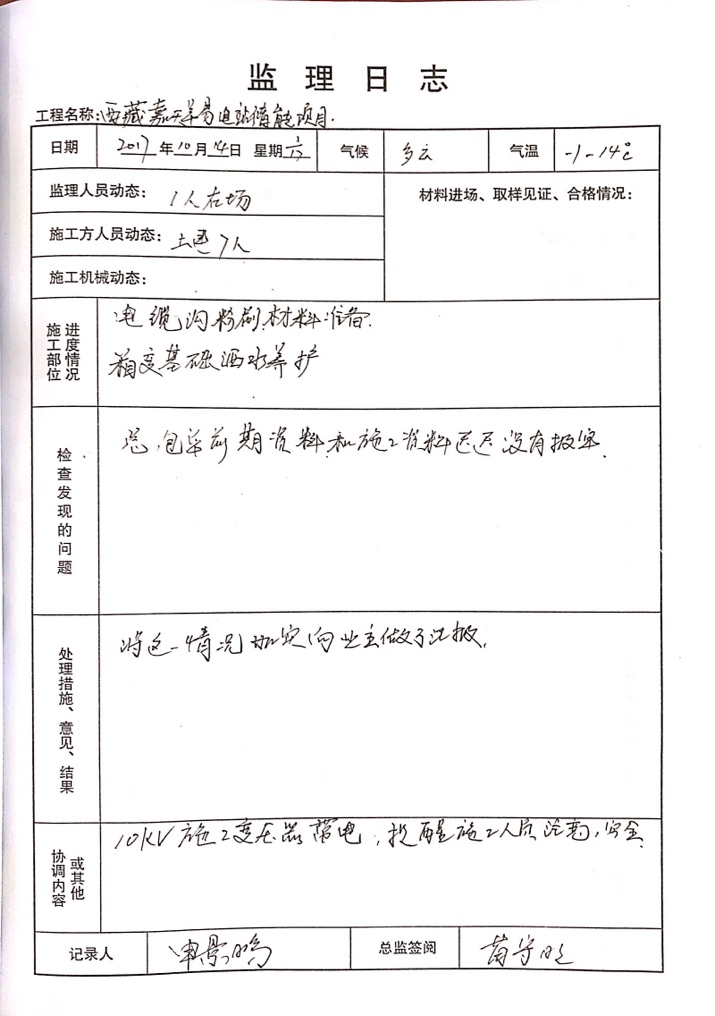 监理日志
工程名称:西藏嘉天羊易电站储能项目.
日期 2017年10月14日 星期六 气候 多云 气温 -1-14℃
监理人员动态: 1人在场 材料进场、取样见证、合格情况:
施工方人员动态: 土建7人
施工机械动态:
施工部位进度情况 电缆沟粉刷.材料准备.
箱变基础洒水养护
检查发现的问题 总包单前期资料和施工资料迟迟没有报审.
处理措施、意见、结果 将这一情况如实向业主做了汇报.
协调内容或其他 10KV施工变压器带电,提醒施工人员注意,安全.
记录人 申景鸣 总监签阅